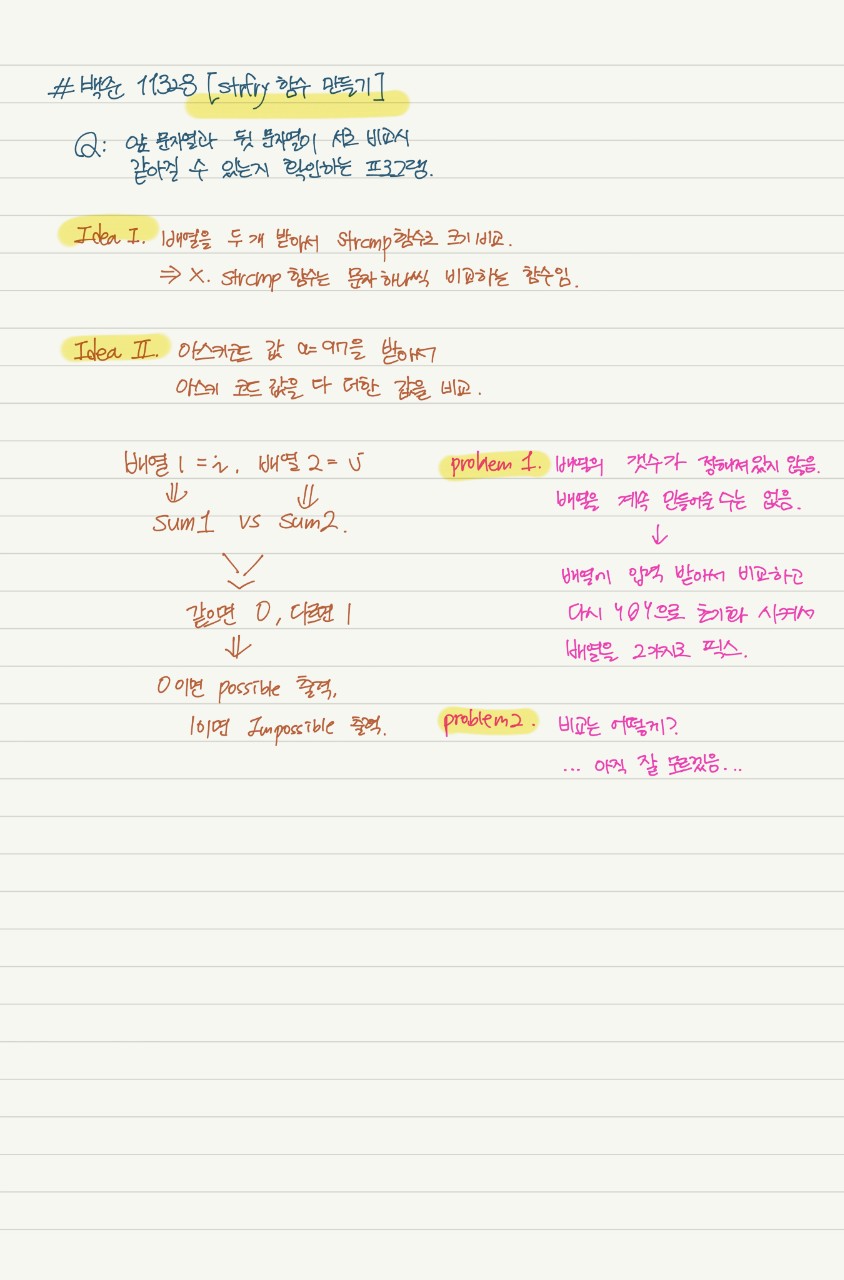 # 백준 11328 [strfry 함수 만들기]
Q: 앞 문자열과 뒷 문자열이 서로 비교시
같아질 수 있는지 확인하는 프로그램.
Idea I. 배열을 두 개 받아서 strcmp 함수로 크기 비교.
⇒ X. strcmp 함수는 문자 하나씩 비교하는 함수임.
Idea II. 아스키코드 값 a=97을 받아서
아스키 코드 값을 다 더한 값을 비교.
배열 1 = i, 배열 2 = j
⇓ ⇓
sum1 vs sum2.
같으면 0, 다르면 1
⇓
0이면 possible 출력,
1이면 Impossible 출력.
problem 1. 배열의 갯수가 정해져있지 않음.
배열을 계속 만들어줄 수는 없음.
↓
배열에 입력 받아서 비교하고
다시 '0'으로 초기화 시켜서
배열을 2가지로 픽스.
problem 2. 비교는 어떻게?
... 아직 잘 모르겠음...